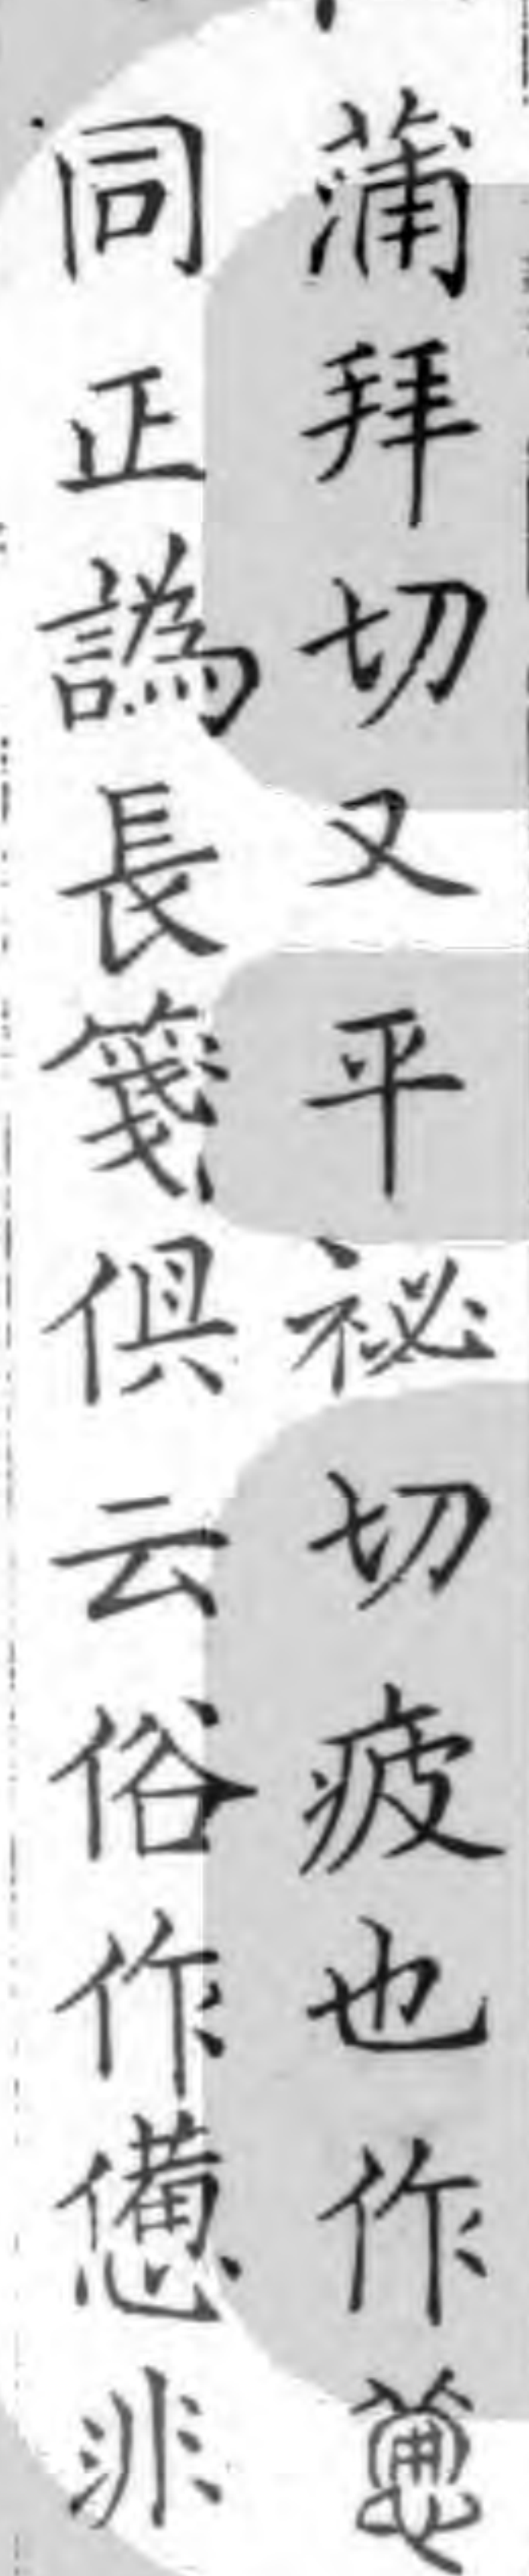 蒲拜切又平祕切疲也作𢞥
同正譌長箋俱云俗作憊非